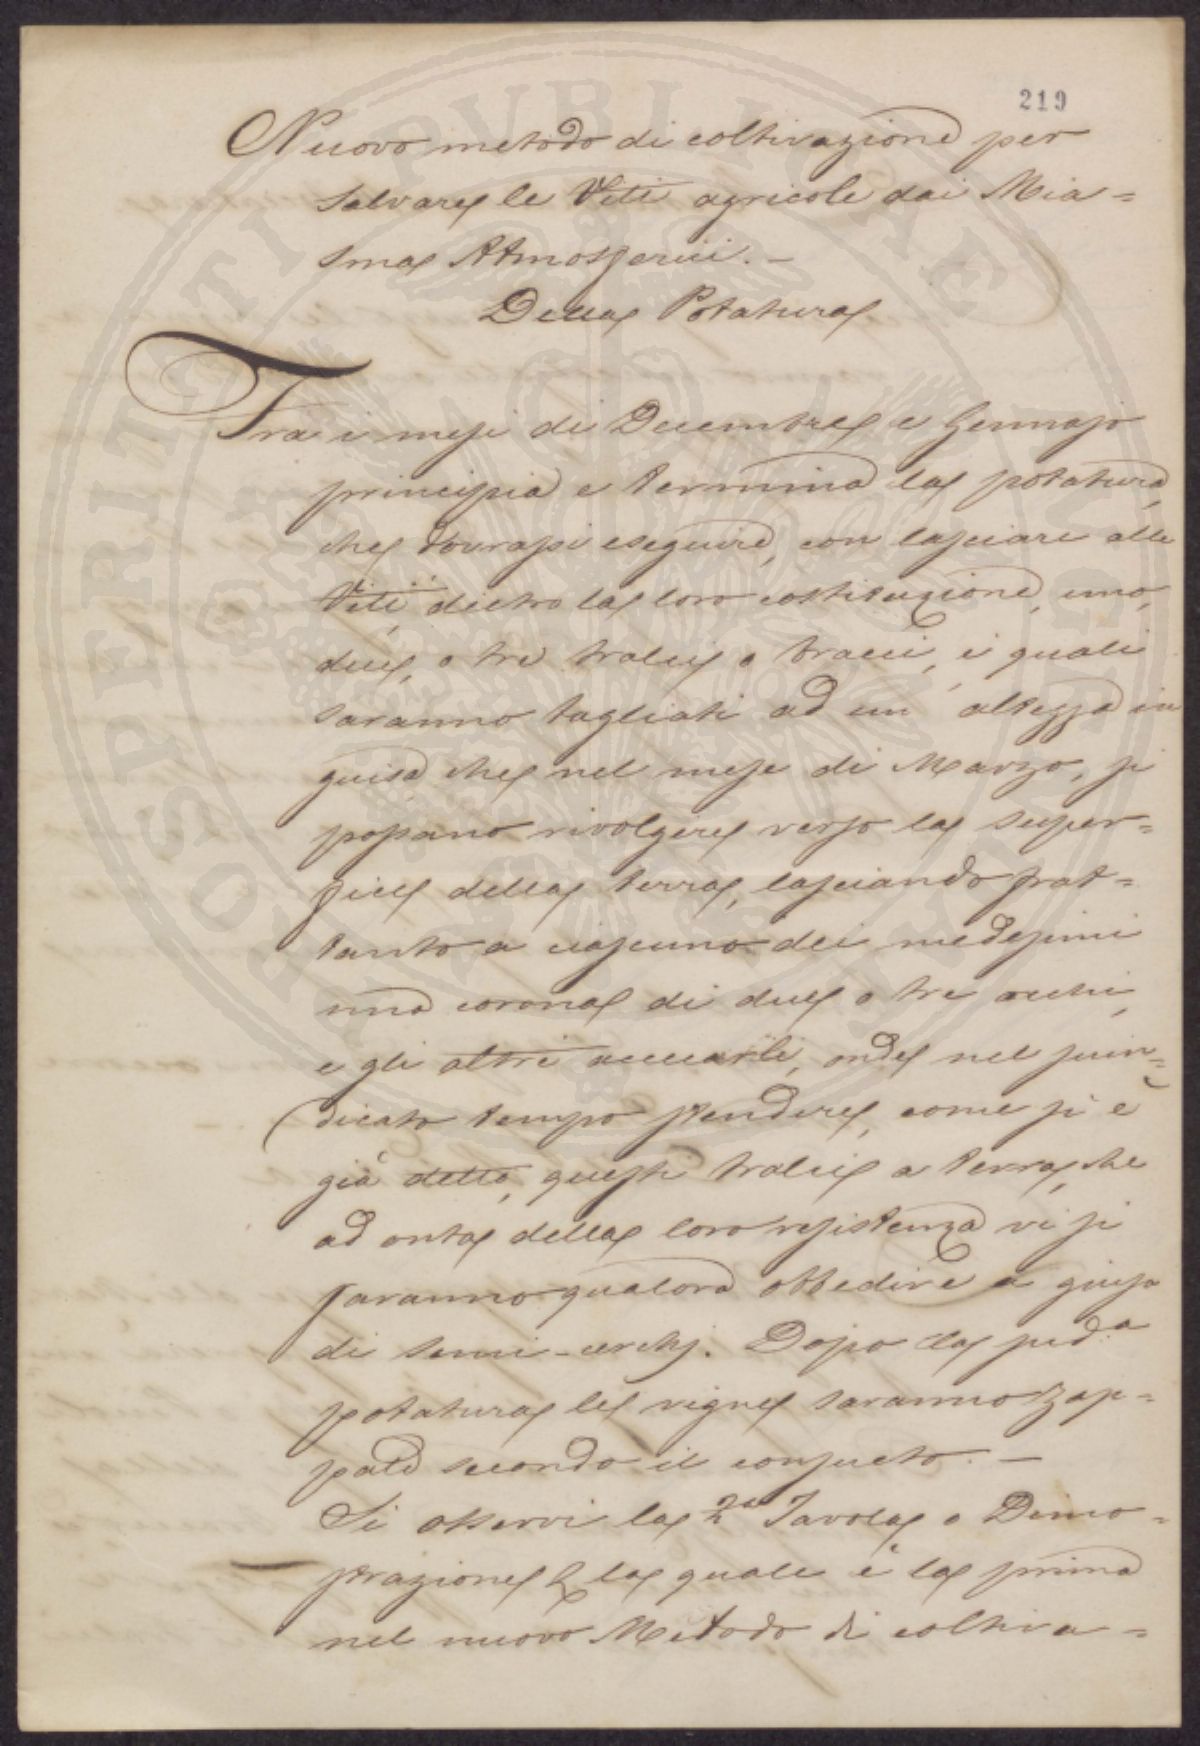 219
Nuovo metodo di coltivazione per
salvare le Viti agricole dai Mia=
sma Atmosferici. –
Della Potatura
Tra i mesi di Decembre e Gennajo
principia e termina la potatura,
che dovrassi eseguire, con lasciare alle
Viti, dietro la loro costituzione, uno,
due, o tre tralci o bracci, i quali
saranno tagliati ad un' altezza in
guisa che nel mese di Marzo, si
possano rivolgere verso la super=
ficie della terra, lasciando frat=
tanto a ciascuno dei medesimi
una corona di due o tre occhi,
e gli altri accecarli, onde nel suin=
dicato tempo stendere, come si è
già detto, questi tralci a terra, che
ad onta della loro resistenza vi si
faranno qualora obbedire a guisa
di semi-cerchj. Dopo la sud.a
potatura le vigne saranno zap=
pate secondo il consueto. –
Si osservi la 2a Tavola o Dimo=
strazione la quale è la prima
nel nuovo Metodo di coltiva=
HOSPERITATI PUBLICAE AUGENDAE